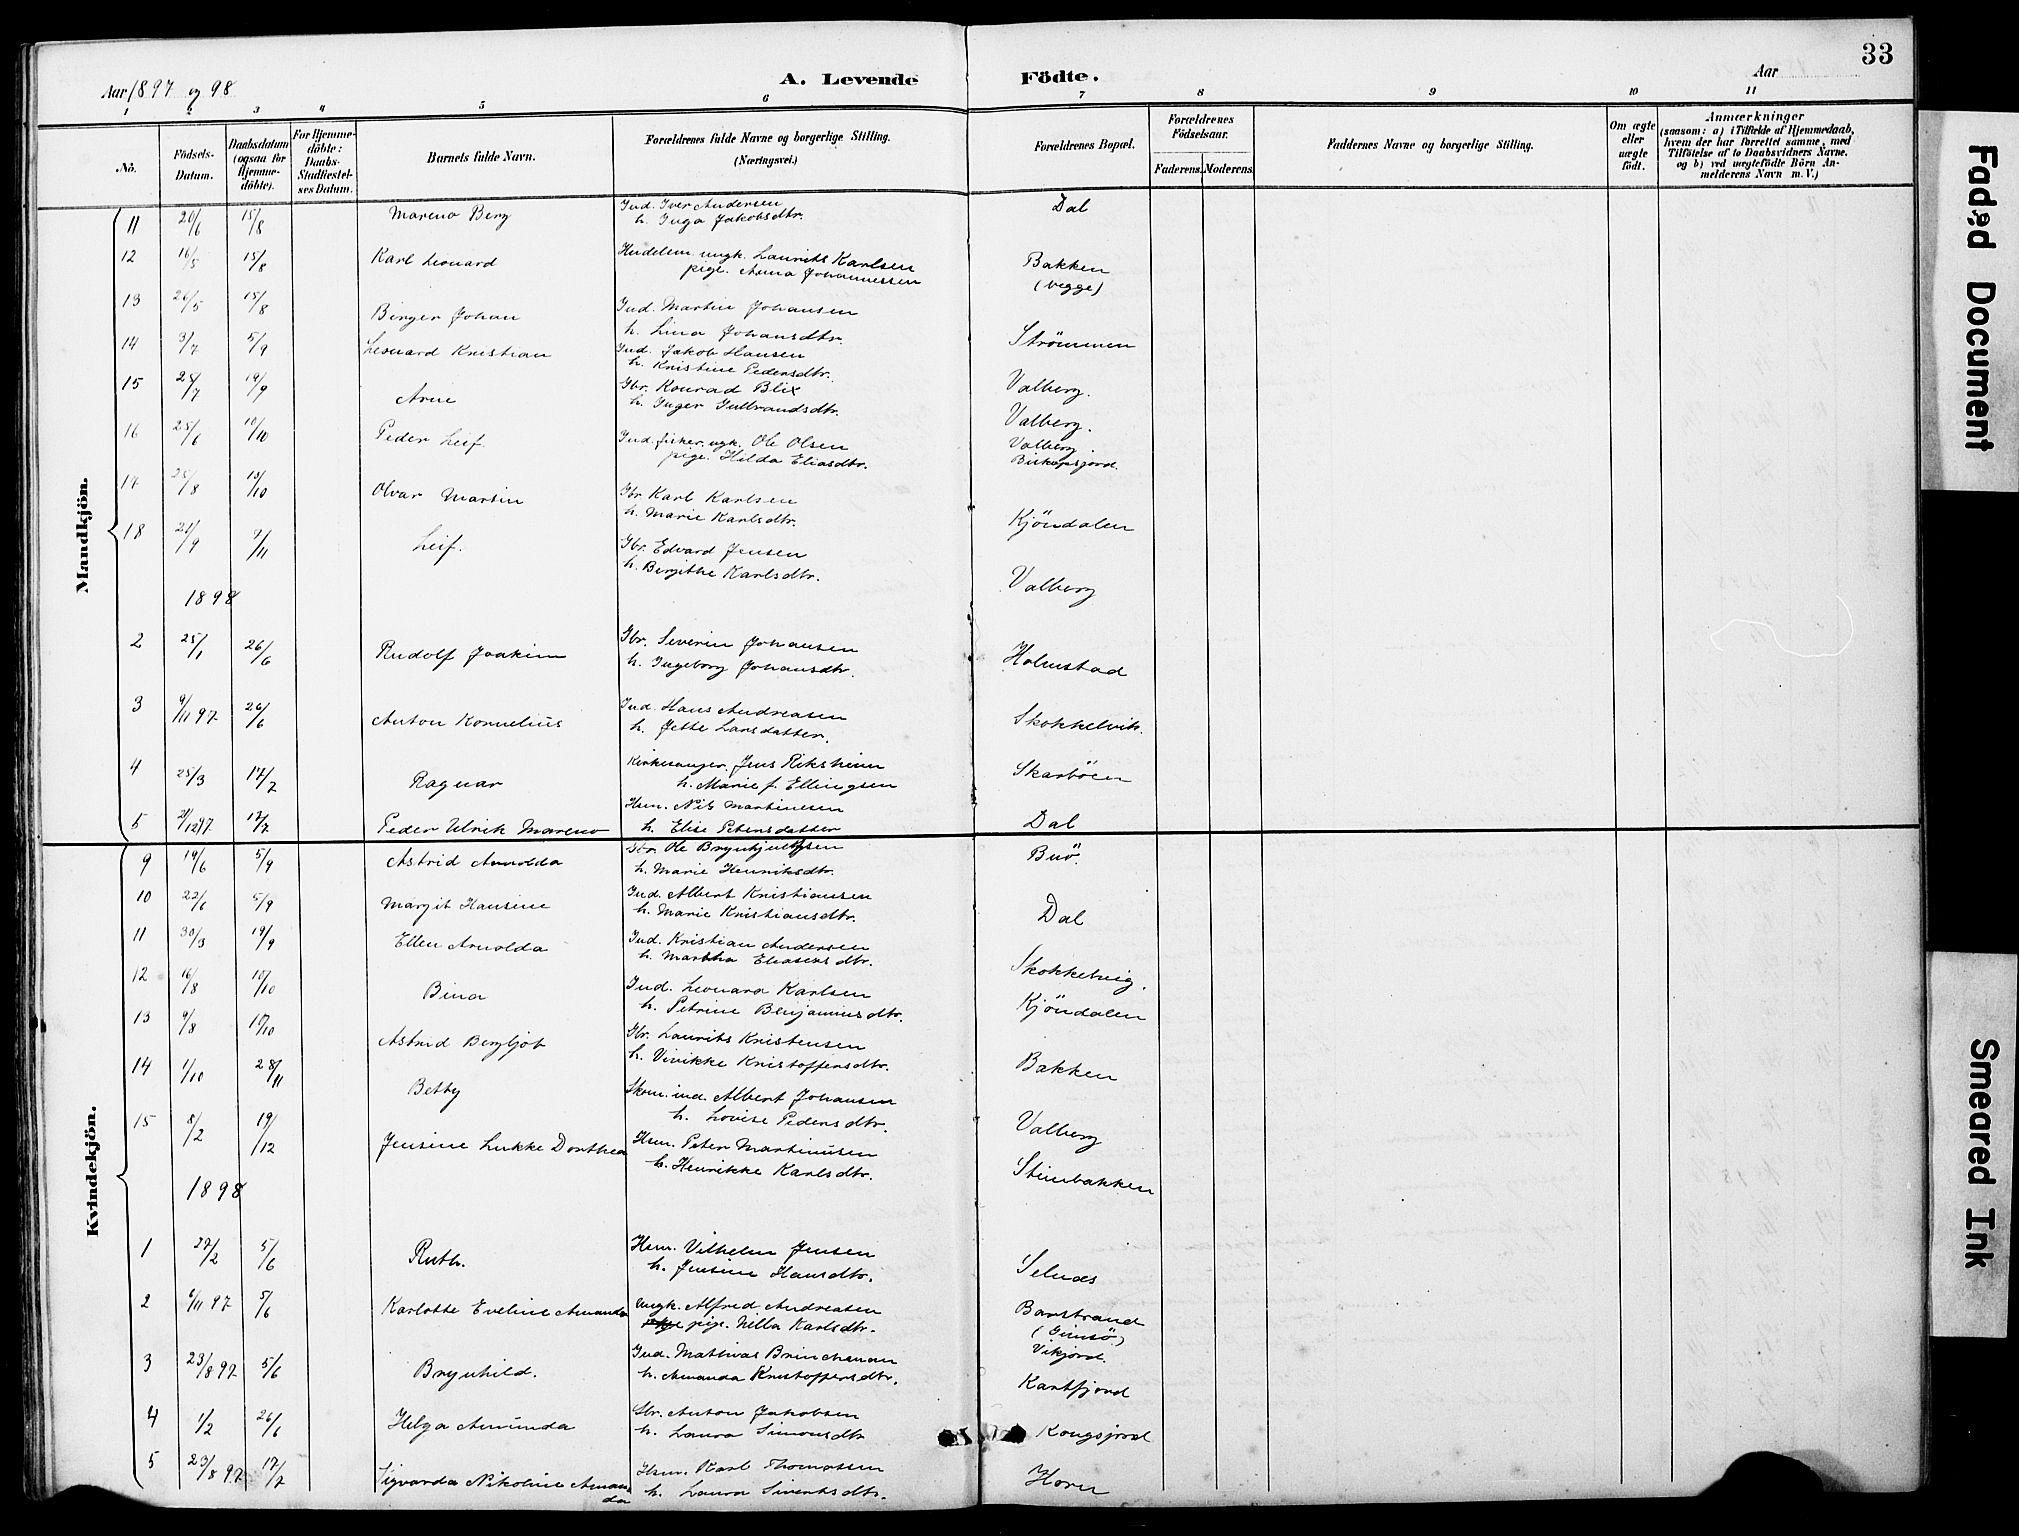 33
Aar 1897 og 98
A. Levende Födte.
Aar
1 2 3 4 5 6 7 8 9 10 11
No.
Födsels-Datum.
Daabsdatum (ogsaa for Hjemme-döbte).
For Hjemme-döbte: Daabs-Stadfæstel-ses Datum.
Barnets fulde Navn.
Forældrenes fulde Navne og borgerlige Stilling.
(Næringsvei.)
Forældrenes Bopæl.
Forældrenes Födselsaar.
Faderens. Moderens.
Faddernes Navne og borgerlige Stilling.
Om ægte eller uægte födt.
Anmærkninger
(saasom: a) i Tilfælde af Hjemmedaab,
hvem der har forrettet samme, med
Tilföielse af to Daabsvidners Navne,
og b) ved uægtefödte Börn An-
melderens Navn m. V.)
Mandkjön.
11 20/6 15/8 Mareno Berg Ind. Iver Andersen Dal
h. Inga Jakobsdtr.
12 16/5 15/8 Karl Leonard Handelsm. ungk. Laurits Karlsen Bakken
pige. Anna Johannessen (begge)
13 26/5 15/8 Birger Johan Ind. Martin Johansen
h. Lina Johansdtr. Strömmen
14 3/7 5/9 Leonard Kristian Ind. Jakob Hansen
h. Kristine Pedersdtr. Valberg.
15 25/7 19/9 Arne Gbr. Konrad Blix
h. Inger Gulbrandsdtr. Valberg.
16 25/6 10/10 Peder Leif. Ind. fisker. ugk. Ole Olsen Valberg.
pige. Hilda Eliasdtr.
17 25/8 13/10 Olvar Martin Gbr. Karl Karlsen
h. Marie Karlsdtr. Kjöndalen
18 21/9 7/11 Leif. Gbr. Edvard Jensen
h. Bergithe Karlsdtr. Valberg
1898
2 25/1 26/6 Rudolf Joakim Gbr. Severin Johansen
h. Ingeborg Johansdtr. Holmstad
3 9/11 97 26/6 Anton Kornelius Ind. Hans Andreasen
h. Jette Larsdatter. Skokkelvik.
4 25/3 17/7 Ragnar Kirkesanger. Jens Reksheim Skarböen
h. Marie f. Ellingsen
5 /12 97 17/7 Peder Ulrik Mareno Hsm. Nils Martinesen
h. Elise Petersdatter Dal
Kvindekjön.
9 19/6 5/9 Astrid Arnolda Gbr. Ole Brynhjulfsen Buö.
h. Marie Henriksdtr.
10 22/6 5/9 Margit Hansine Ind. Albert Kristiansen
h. Marie Kristiansdtr. Dal
11 30/3 19/9 Ellen Arnolda Ind. Kristian Andersen
h. Martha Eliasens dtr. Skokkelvig.
12 16/8 10/10 Bina Ind. Leonard Karlsen
h. Petrine Benjaminsdtr. Kjöndalen
13 9/8 10/10 Astrid Bergljot Gbr. Laurits Kristensen
h. Vivikke Kristoffersdtr. Bakken
14 1/10 28/11 Betty Skom. ind. Albert Johansen
h. Lovise Pedersdtr. Valberg
15 8/2 19/12 Jensine Lukke Dorthea Hsm. Peter Martinusen
h. Henrikke Karlsdtr. Stinbakken
1898
1 27/2 5/6 Ruth. Hsm. Vilhelm Jensen
h. Jensine Hansdtr. Selnæs
2 6/11 97 5/6 Karlotte Eveline Amanda Ungk. Alfred Andreasen Barstrand
pige. Hella Karlsdtr. (Gimsö)
3 23/8 97 5/6 Brynhild. Ind. Mathias Brinchman Vikjord.
h. Amanda Kristoffersdtr. Kartfjord
4 1/2 26/6 Helga Amunda Gbr. Anton Jakobsen
h. Laura Simonsdtr Kongsjord
5 23/8 97 17/7 Sigvarda Nikoline Aman- Hsm. Karl Thomassen
da h. Laura Sivertsdtr. Horn
Faded Document
Smeared Ink